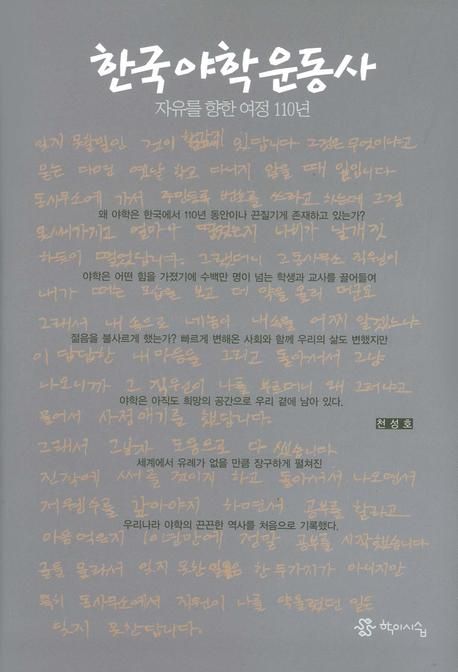 한국야학운동사
자유를 향한 여정 110년
잊지 못할일인 것이 한가지 있답니다 그것은 무엇이냐고
묻는 다면 옛날 학교 다니지 않을 때 일입니다
동사무소에 가서 주민등록 번호를 쓰라고 하는데 그걸
왜 야학은 한국에서 110년 동안이나 끈질기게 존재하고 있는가?
얼마나 떨렸는지 나비가 날개짓
하듯이 떨렸답니다. 그랬더니 그동사무소 직원이
야학은 어떤 힘을 가졌기에 수백만 명이 넘는 학생과 교사를 끌어들여
내가 떠는 모습을 보고 더 약을 올리
그래서 내 속으로 네놈이 내속을 어찌 알겠느냐
젊음을 불사르게 했는가? 빠르게 변해온 사회와 함께 우리의 삶도 변했지만
이 답답한 내마음을 그리고 돌아서서 그냥
나오니까 그 직원이 나를 부르더니 왜 그러냐고
야학은 아직도 희망의 공간으로 우리 곁에 남아 있다.
물어서 사정얘기를 했답니다.
천성호
그래서 그남자 도움으로 다 썼습니다
세계에서 유례가 없을 만큼 장구하게 펼쳐진
진작에 써 줄 것이지 하고 돌아서서 나오면서
저 웬수를 갚아야지 하면서 공부를 할라고
우리나라 야학의 끈끈한 역사를 처음으로 기록했다.
마음먹은지 10년만에 정말 공부를 시작했습니다
글을 몰라서 잊지 못한 일들은 한 두가지가 아니지만
특히 동사무소에서 직원이 나를 약올렸던 일도
잊지 못한답니다.
학이시습